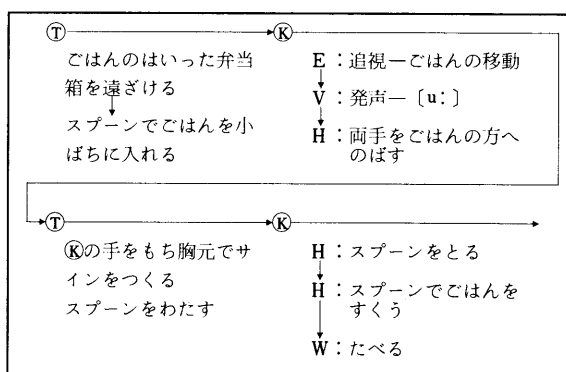 Ⓣ
ごはんのはいった弁当
箱を遠ざける
スプーンでごはんを小
ばちに入れる
Ⓚ
E：追視―ごはんの移動
V：発声―〔u：〕
H：両手をごはんの方へ
のばす
Ⓣ
Ⓚの手をもち胸元でサ
インをつくる
スプーンをわたす
Ⓚ
H：スプーンをとる
H：スプーンでごはんを
すくう
W：たべる